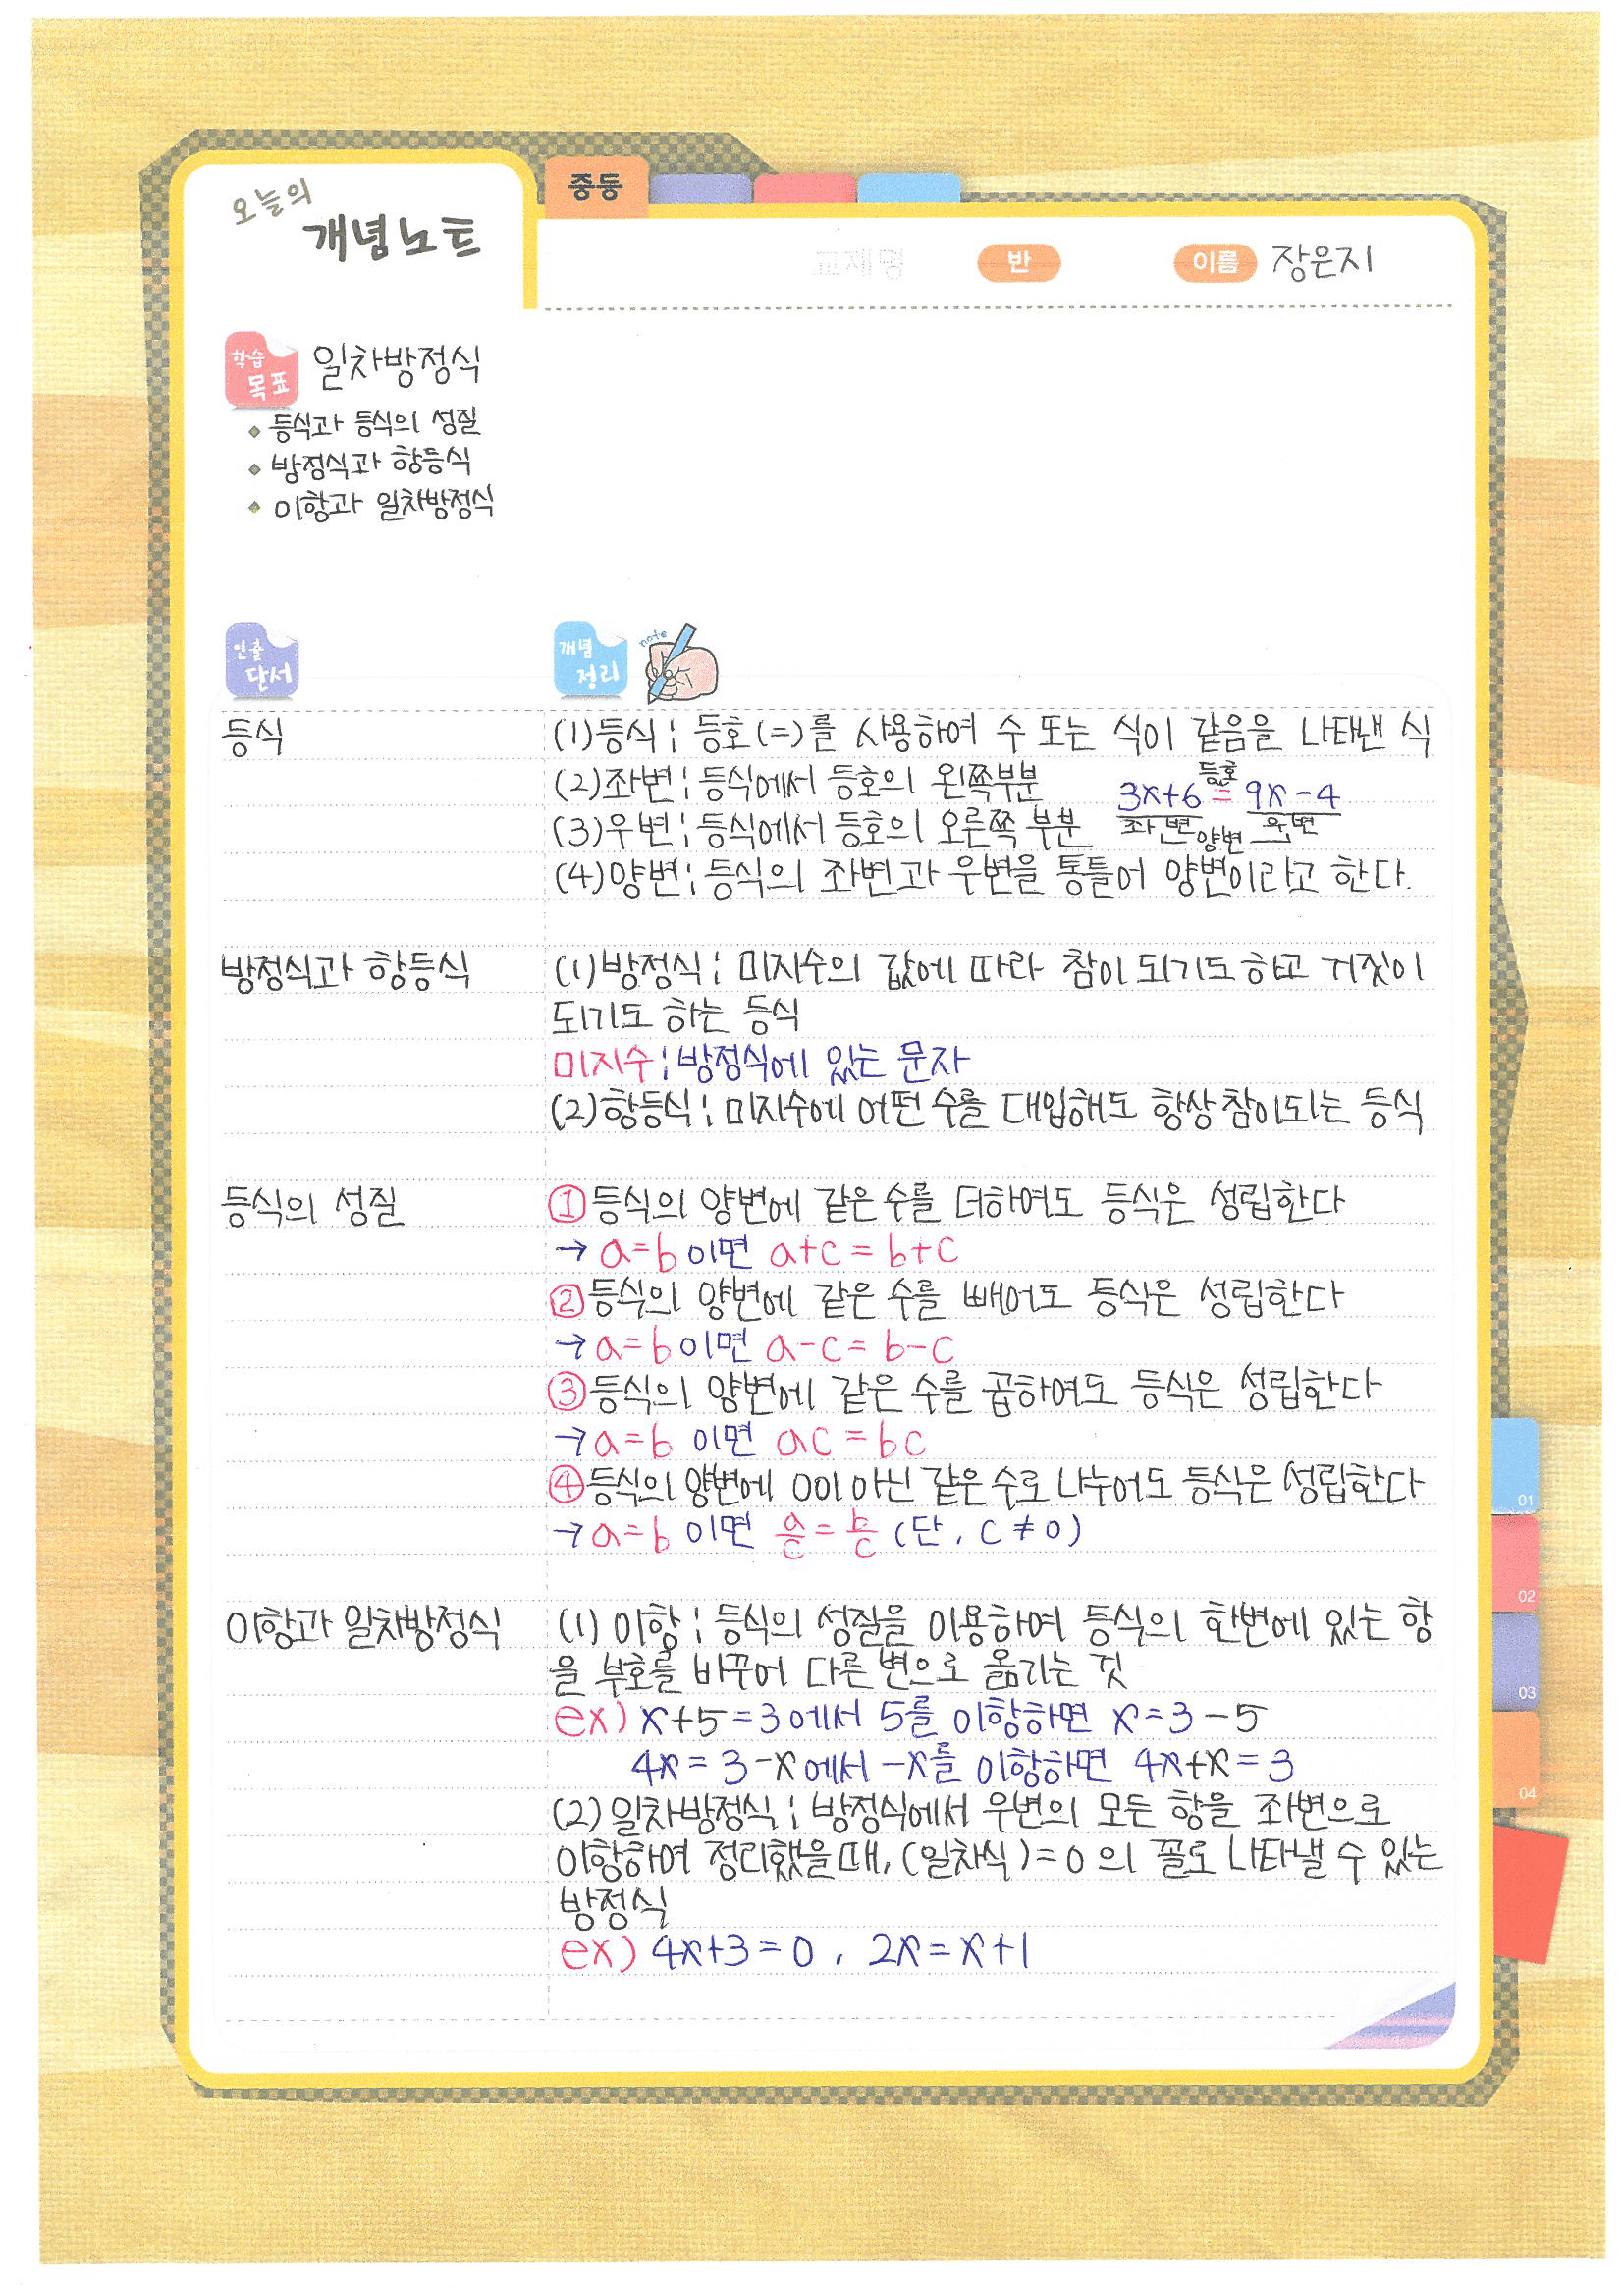 오늘의
개념노트
중등
교재명 반 이름 장은지
학습
목표
일차방정식
등식과 등식의 성질
방정식과 항등식
이항과 일차방정식
인출
단서
개념
정리
note
등식
(1) 등식 ; 등호(=)를 사용하여 수 또는 식이 같음을 나타낸 식
(2) 좌변 ; 등식에서 등호의 왼쪽부분
등호
3x+6 = 9x-4
좌변 양변 우변
(3) 우변 ; 등식에서 등호의 오른쪽 부분
(4) 양변 ; 등식의 좌변과 우변을 통틀어 양변이라고 한다.
방정식과 항등식
(1) 방정식 ; 미지수의 값에 따라 참이 되기도 하고 거짓이
되기도 하는 등식
미지수 ; 방정식에 있는 문자
(2) 항등식 ; 미지수에 어떤 수를 대입해도 항상 참이되는 등식
등식의 성질
① 등식의 양변에 같은 수를 더하여도 등식은 성립한다
→ a=b 이면 a+c = b+c
② 등식의 양변에 같은 수를 빼어도 등식은 성립한다
→ a=b 이면 a-c = b-c
③ 등식의 양변에 같은 수를 곱하여도 등식은 성립한다
→ a=b 이면 ac = bc
④ 등식의 양변에 0이 아닌 같은 수로 나누어도 등식은 성립한다
→ a=b 이면 a/c = b/c (단, c≠0)
이항과 일차방정식
(1) 이항 ; 등식의 성질을 이용하여 등식의 한변에 있는 항
을 부호를 바꾸어 다른 변으로 옮기는 것
ex) x+5=3에서 5를 이항하면 x=3-5
4x=3-x에서 -x를 이항하면 4x+x=3
(2) 일차방정식 ; 방정식에서 우변의 모든 항을 좌변으로
이항하여 정리했을때, (일차식)=0 의 꼴로 나타낼 수 있는
방정식
ex) 4x+3=0, 2x=x+1
01
02
03
04